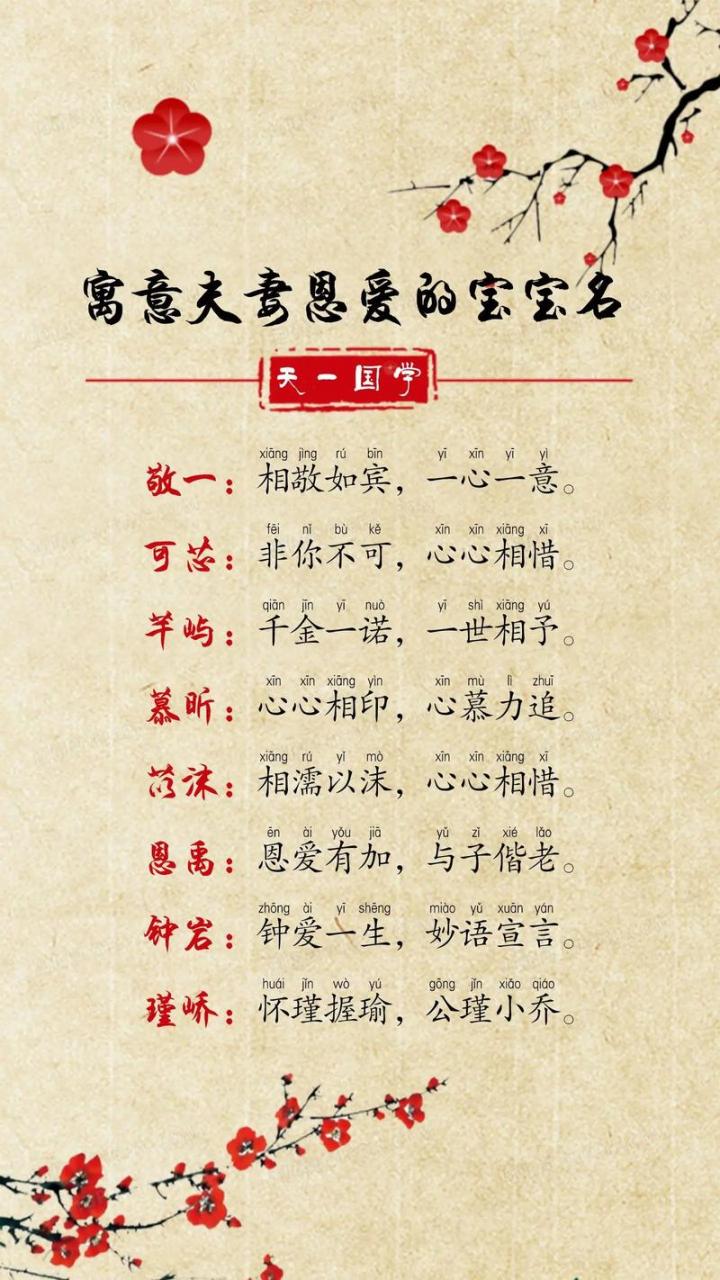 寓意夫妻恩爱的宝宝名
天一国学
xiāng jìng rú bīn yī xīn yī yì
敬一：相敬如宾，一心一意。
fēi nǐ bù kě xīn xīn xiāng xī
可芯：非你不可，心心相惜。
qiān jīn yī nuò yī shì xiāng yú
芊屿：千金一诺，一世相予。
xīn xīn xiāng yìn xīn mù lì zhuī
慕昕：心心相印，心慕力追。
xiāng rú yǐ mò xīn xīn xiāng xī
苡沫：相濡以沫，心心相惜。
ēn ài yǒu jiā yǔ zǐ xié lǎo
恩禹：恩爱有加，与子偕老。
zhōng ài yī shēng miào yǔ xuān yán
钟岩：钟爱一生，妙语宣言。
huái jǐn wò yú gōng jǐn xiǎo qiáo
瑾峤：怀瑾握瑜，公瑾小乔。